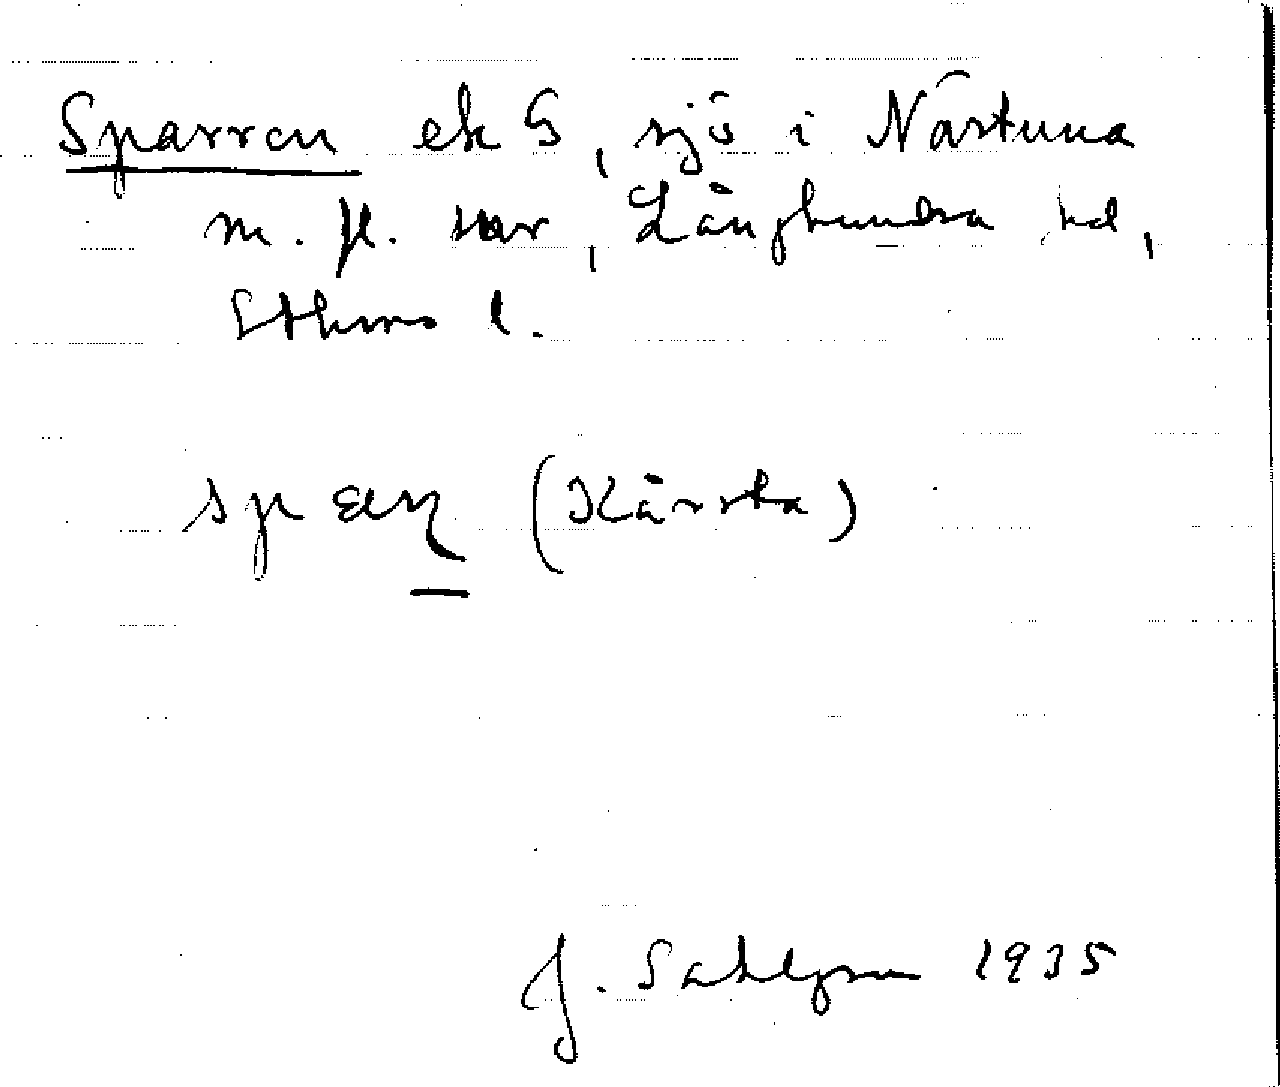 Sparren ek 5, sjö i Närtuna
m. fl. snr, Långhundra hd,
Sthms l.
(Kårsta)
J. Sahlgren 1935